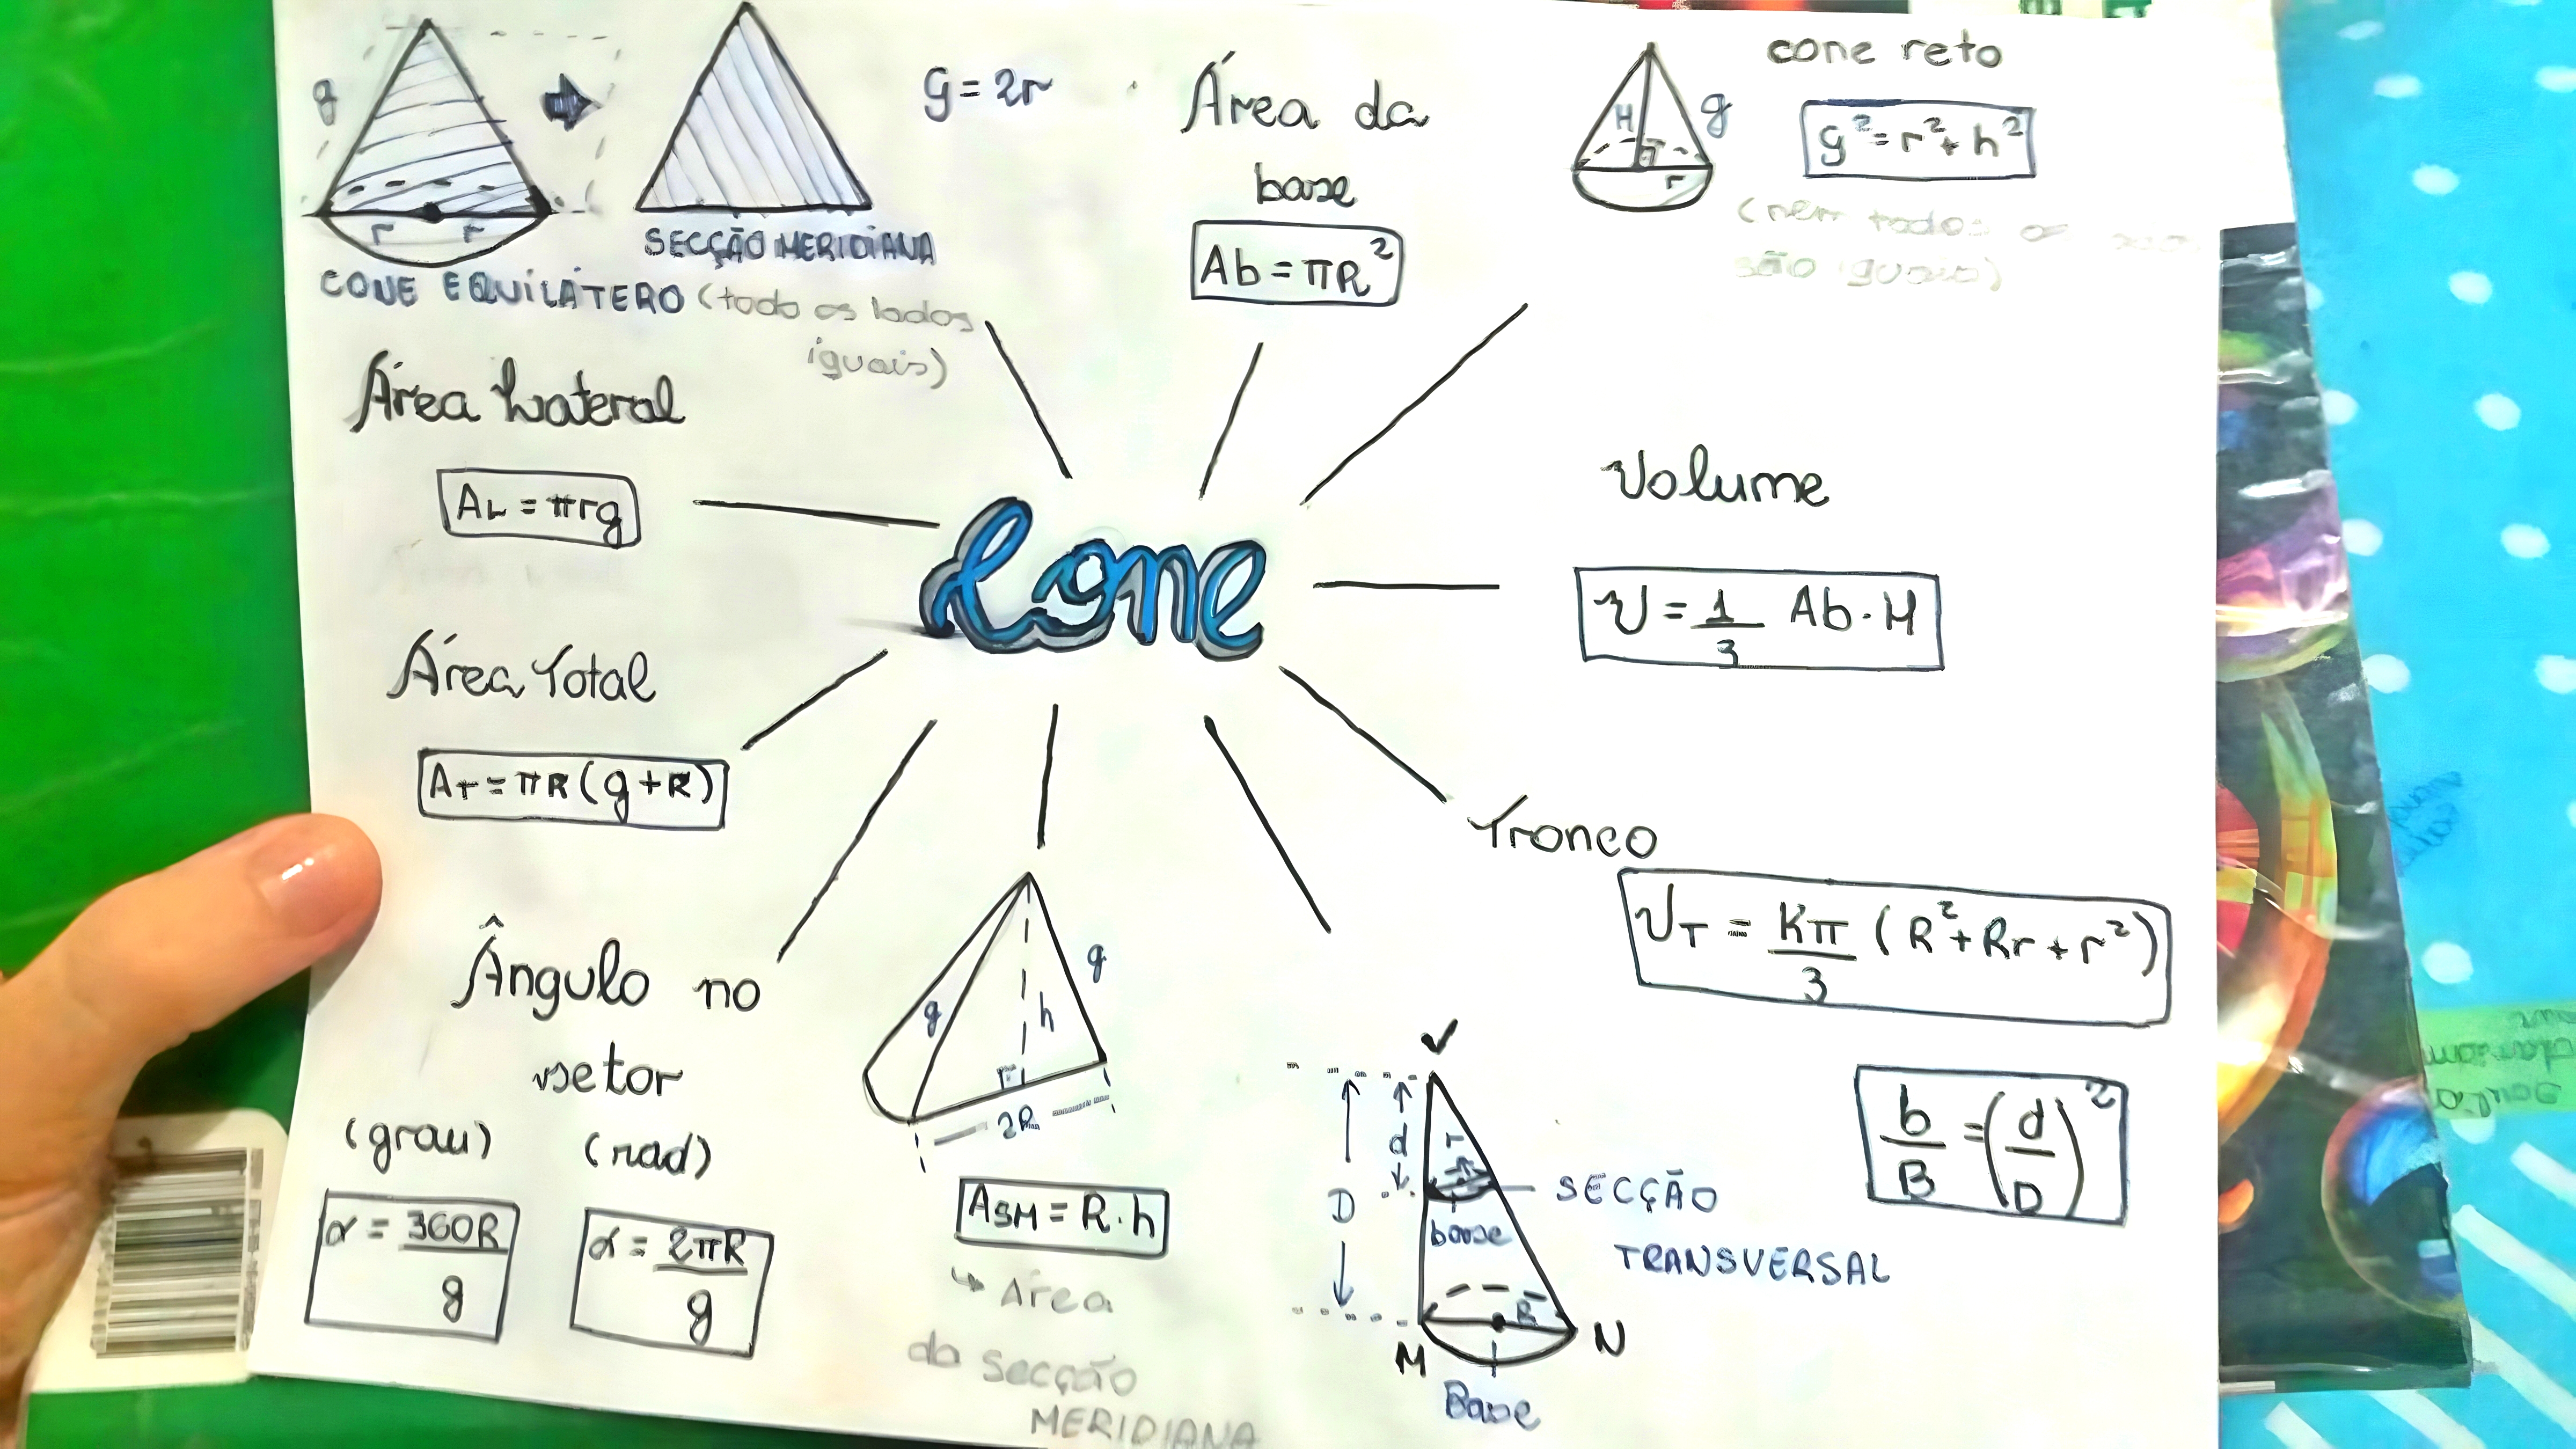 g
r r
CONE EQUILÁTERO (todo os lados
iguais)
SECÇÃO MERIDIANA
G = 2r
Área da
base
Ab = πR²
H g
r
cone reto
g² = r² + h²
(nem todos os
são iguais)
Área Lateral
AL = πrg
Cone
Volume
V = 1/3 Ab . H
Área Total
AT = πR (g + R)
Tronco
VT = Kπ/3 (R² + Rr + r²)
b/B = (d/D)²
Ângulo no
setor
(grau) (rad)
α = 360R/g
α = 2πR/g
g g
h
2R
ASM = R . h
↳ Área
da secção
MERIDIANA
V
d r
D
base
SECÇÃO
TRANSVERSAL
R
M N
Base